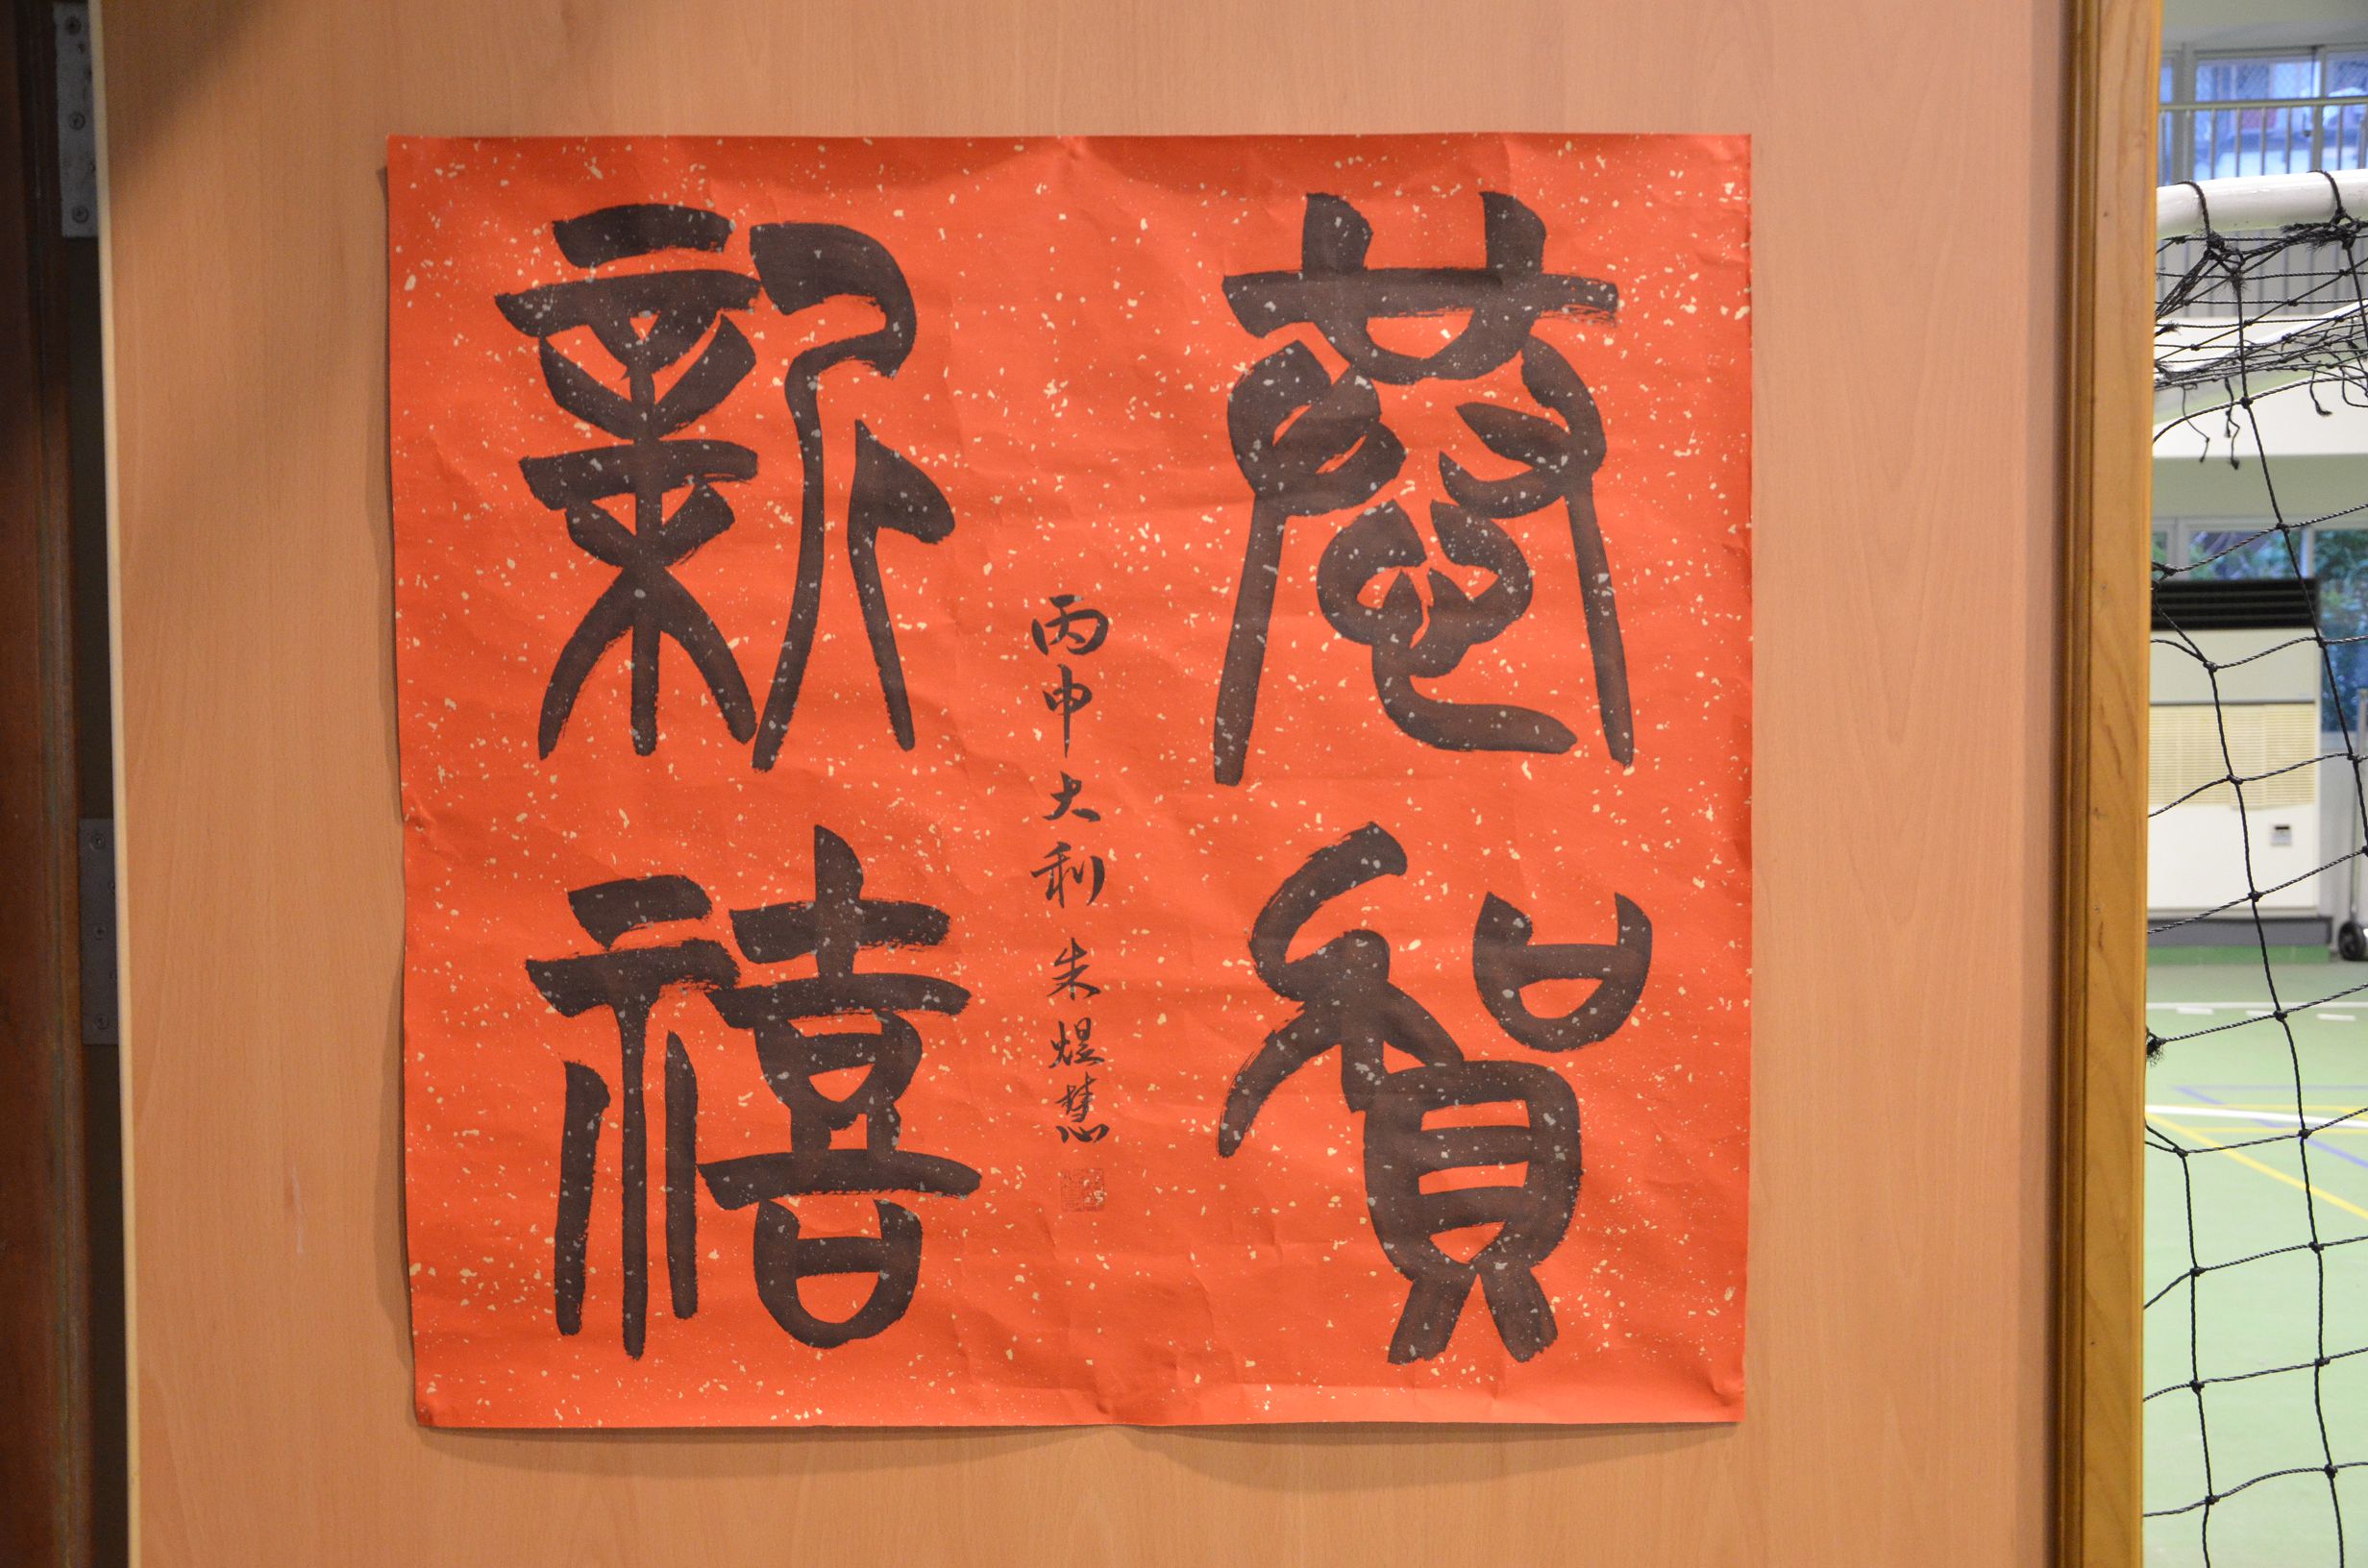 恭賀
新禧
丙申大利 朱煜慧